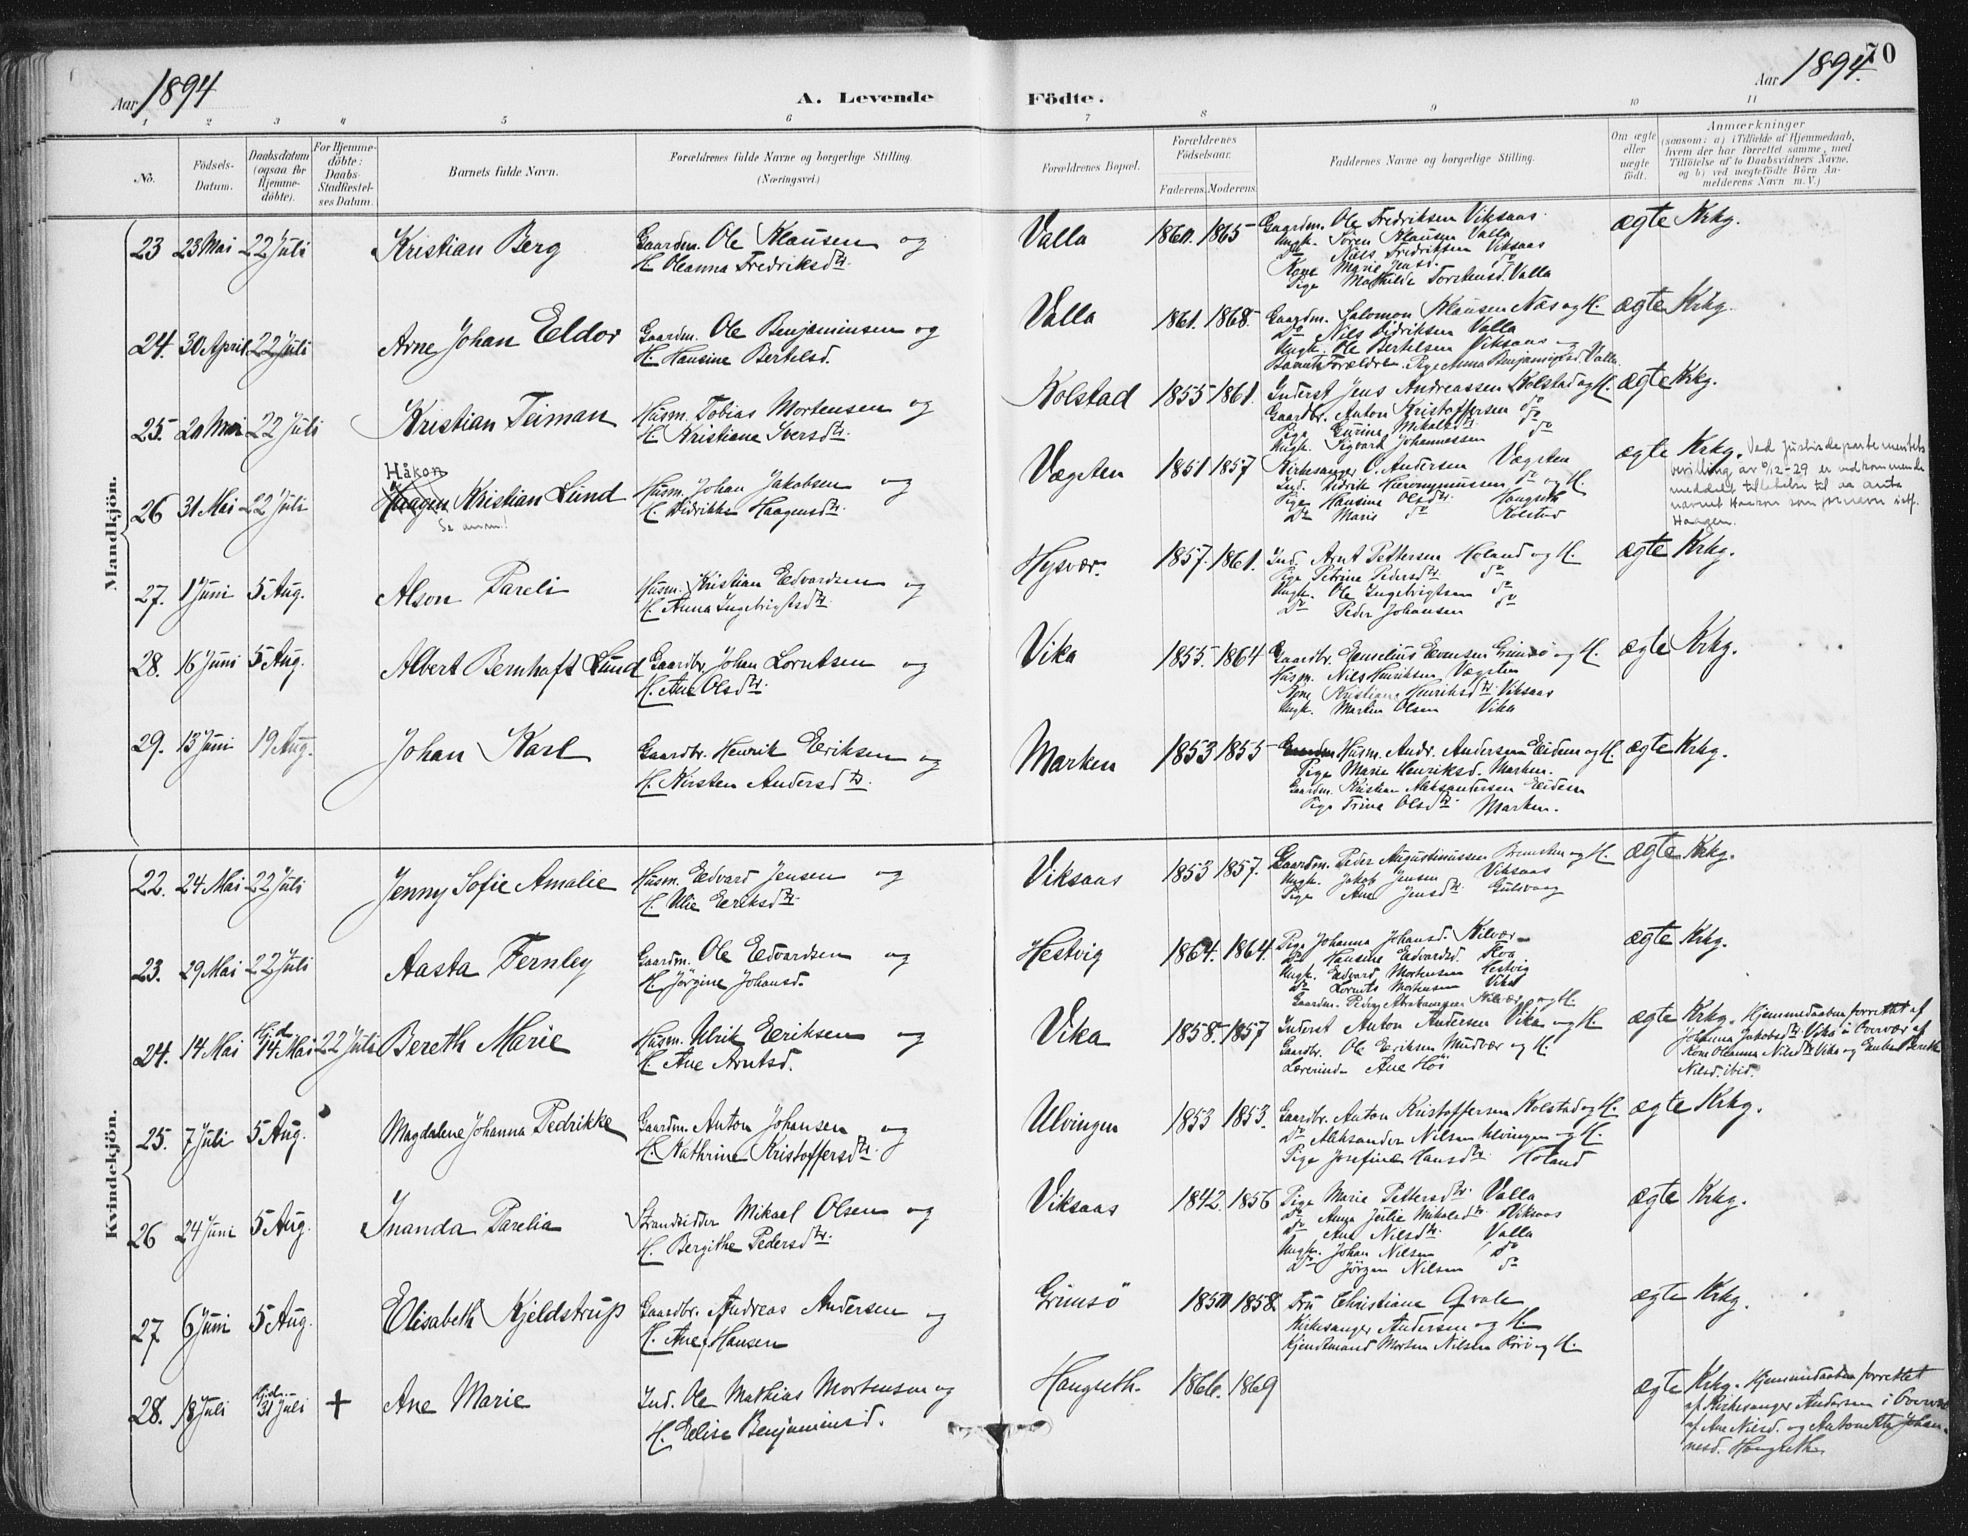 Aar 1894
A. Levende
Födte.
Aar 1894.
70
1 2 3 4 5 6 7 8 9 10 11
No.
Födsels-
Datum.
Daabsdatum
(ogsaa for
Hjemme-
döbte).
For Hjemme-
döbte:
Daabs-
Stadfæstel-
ses Datum.
Barnets fulde Navn.
Forældrenes fulde Navne og borgerlige Stilling.
(Næringsvei.)
Forældrenes Bopæl.
Forældrenes
Födselsaar.
Faderens. Moderens.
Faddernes Navne og borgerlige Stilling.
Om ægte
eller
uægte
födt.
Anmærkninger
(saasom: a) i Tilfælde af Hjemmedaab,
hvem der har forrettet samme, med
Tilföielse af to Daabsvidners Navne,
og b) ved uægtefödte Börn An-
melderens Navn m. V.)
Mandkjön.
23 23 Mai 22 Juli Kristian Berg
Gaardm. Ole Klausen og
H. Oleanna Fredriksdtr.
Valla 1860. 1865
Gaardm. Ole Fredriksen Viksaas.
Ungk. Sören Klausen Valla
do Niels Fredriksen Viksaas
Kone Marie Jensd. do
Pige Mathilde Torstensd. Valla
ægte Krkg.
24. 30 April 22 Juli Arne Johan Eldor
Gaardm. Ole Benjaminsen og
H. Hansine Bertelsd.
Valla 1861. 1868.
Gaardm. Salomon Klausen Næs og H.
Do Nils Didriksen Valla
Ungk. Ole Bertelsen Viksaas og
Barnets Forældre. Pige Anna Benjaminsd. Valla.
ægte Krkg.
25. 20 Mai 22 Juli Kristian Teiman
Husm. Tobias Mortensen og
H. Kristiane Iversdtr.
Kolstad 1855 1861.
Inderst Jens Andreassen Kolstad og H.
Gaardbr. Anton Kristoffersen do
Pige Gurine Mikalsdtr. do
Ungk. Sigvart Johannessen do
ægte Krkg.
26 31 Mai 22 Juli Håkon
Haagen Kristian Lund
Se anm.!
Husm. Johan Jakobsen og
H. Didrikke Haagensdtr.
Vægsten 1851 1857
Kirkesanger O. Andersen Vægsten
Ind. Didrik Hieronymussen do og H.
Pige Hansine Olsdtr. Haugseth
Do Maris do Kolstad
ægte Krkg. Ved Justisdepartementets
bevilling av 9/12-29 er vedkommende
meddelt tillatelse til aa anta
navnet Haakon som fornavn istf.
Haagen.
27. 1 Juni 5 Aug. Alson Pareli
Husm. Kristian Edvardsen og
H. Anna Ingebrigtsdtr.
Hysvær. 1857. 1861.
Ind. Arnt Pettersen Holand og H.
Pige Petrine Pedersdtr. do
Ungk. Ole Ingebrigtsen do
Do Peder Johansen do
ægte Krkg.
28. 16 Juni 5 Aug. Albert Bernhoft Lund
Gaardbr. Johan Lorntsen og
H. Ane Olsdtr.
Vika 1855. 1864
Gaardbr. Enselius Evensen Grimsö og H.
Husm. Nils Henriksen Vægsten
Kone Kristiane Henriksdtr. Viksaas
Ungk. Martin Olsen Vika
ægte Krkg.
29. 13 Juni 19 Aug. Johan Karl
Gaardbr. Henrik Eriksen og
H. Kirsten Andersdtr.
Marken 1853 1855
Gaardm Husm. Andr. Andersen Eidem og H.
Pige Marie Henriksd. Marken.
Gaardm. Kristian Aleksandersen Eidem
Pige Trine Olsdtr. Marken.
ægte Krkg.
Kvindekjön.
22. 24 Mai 22 Juli Jenny Sofie Amalie
Husm. Edvard Jensen og
H. Ulie Eriksdtr.
Viksaas 1853 1857.
Gaardm. Peder Augustinussen Bremsten og H.
Ungk. Jakob Jensen Viksaas
Pige Ane Jensdtr. Gulsvaag
ægte Krkg.
23. 29 Mai 22 Juli Aasta Fernley
Gaardm. Ole Edvardsen og
H. Jörgine Johansd.
Hestvig 1864. 1864.
Pige Johanna Johansd. Kilvær
Do Hansine Edvardsd. Floa
Ungk. Edvard Mortensen Hestvig
Do Lornts Mortensen Vika
Gaardm. Peder Abrahamsen Kilvær og H.
ægte Krkg.
24. 14 Mai Hjd. 14 Mai 22 Juli Bereth Marie
Husm. Ulrik Eriksen og
H. Ane Arntsd.
Vika 1858. 1857
Inderst Anton Andersen Vika og H.
Gaardbr. Ole Eriksen Mudvær og H.
Lærerinde Ane Höi
ægte Krkg. Hjemmedaaben forrettet af
Johanna Jakobsdtr. Vika i Overvær af
Kone Oleanna Nilsdtr. Vika og Enke Bereth
Nilsd. ibid.
25. 7 Juli 5 Aug. Magdalene Johanna Pedrikke
Gaardm. Anton Johansen og
H. Kathrine Kristoffersdtr.
Ulvingen 1853 1853.
Gaardbr. Anton Kristoffersen Kolstad og H.
do Aleksander Nilsen Ulvingen og H.
Pige Josefine Hansdtr. Holand
ægte Krkg.
26 24 Juni 5 Aug. Inanda Parelia
Strandsidder Mikael Olsen og
H. Bergithe Pedersdtr.
Viksaas 1842. 1856
Pige Marie Pettersdtr. Valla
do Anna Julie Mikalsdtr. Viksaas
do Ane Nilsdtr. Valla
Ungk. Johan Nilsen do
do Jörgen Nilsen do
ægte Krkg.
27 6 Juni 5 Aug. Elisabeth Kjeldstrup
Gaardbr. Andreas Andersen og
H. Ane Hansen
Grimsö 1850 1858.
Fru Christiane Qvale
Kirkesanger Andersen og H.
Kjendtmand Morten Nilsen Rörö og H.
ægte Krkg.
28. 18 Juli Hjd. 31 Juli + Ane Marie
Ind. Ole Mathias Mortensen og
H. Elise Benjaminsd.
Haugseth. 1866. 1869
ægte Krkg. Hjemmedaaben forrettet
af Kirkesanger Andersen i Overvær
af Ane Nilsd. og Antonette Johan-
nesd. Haugseth